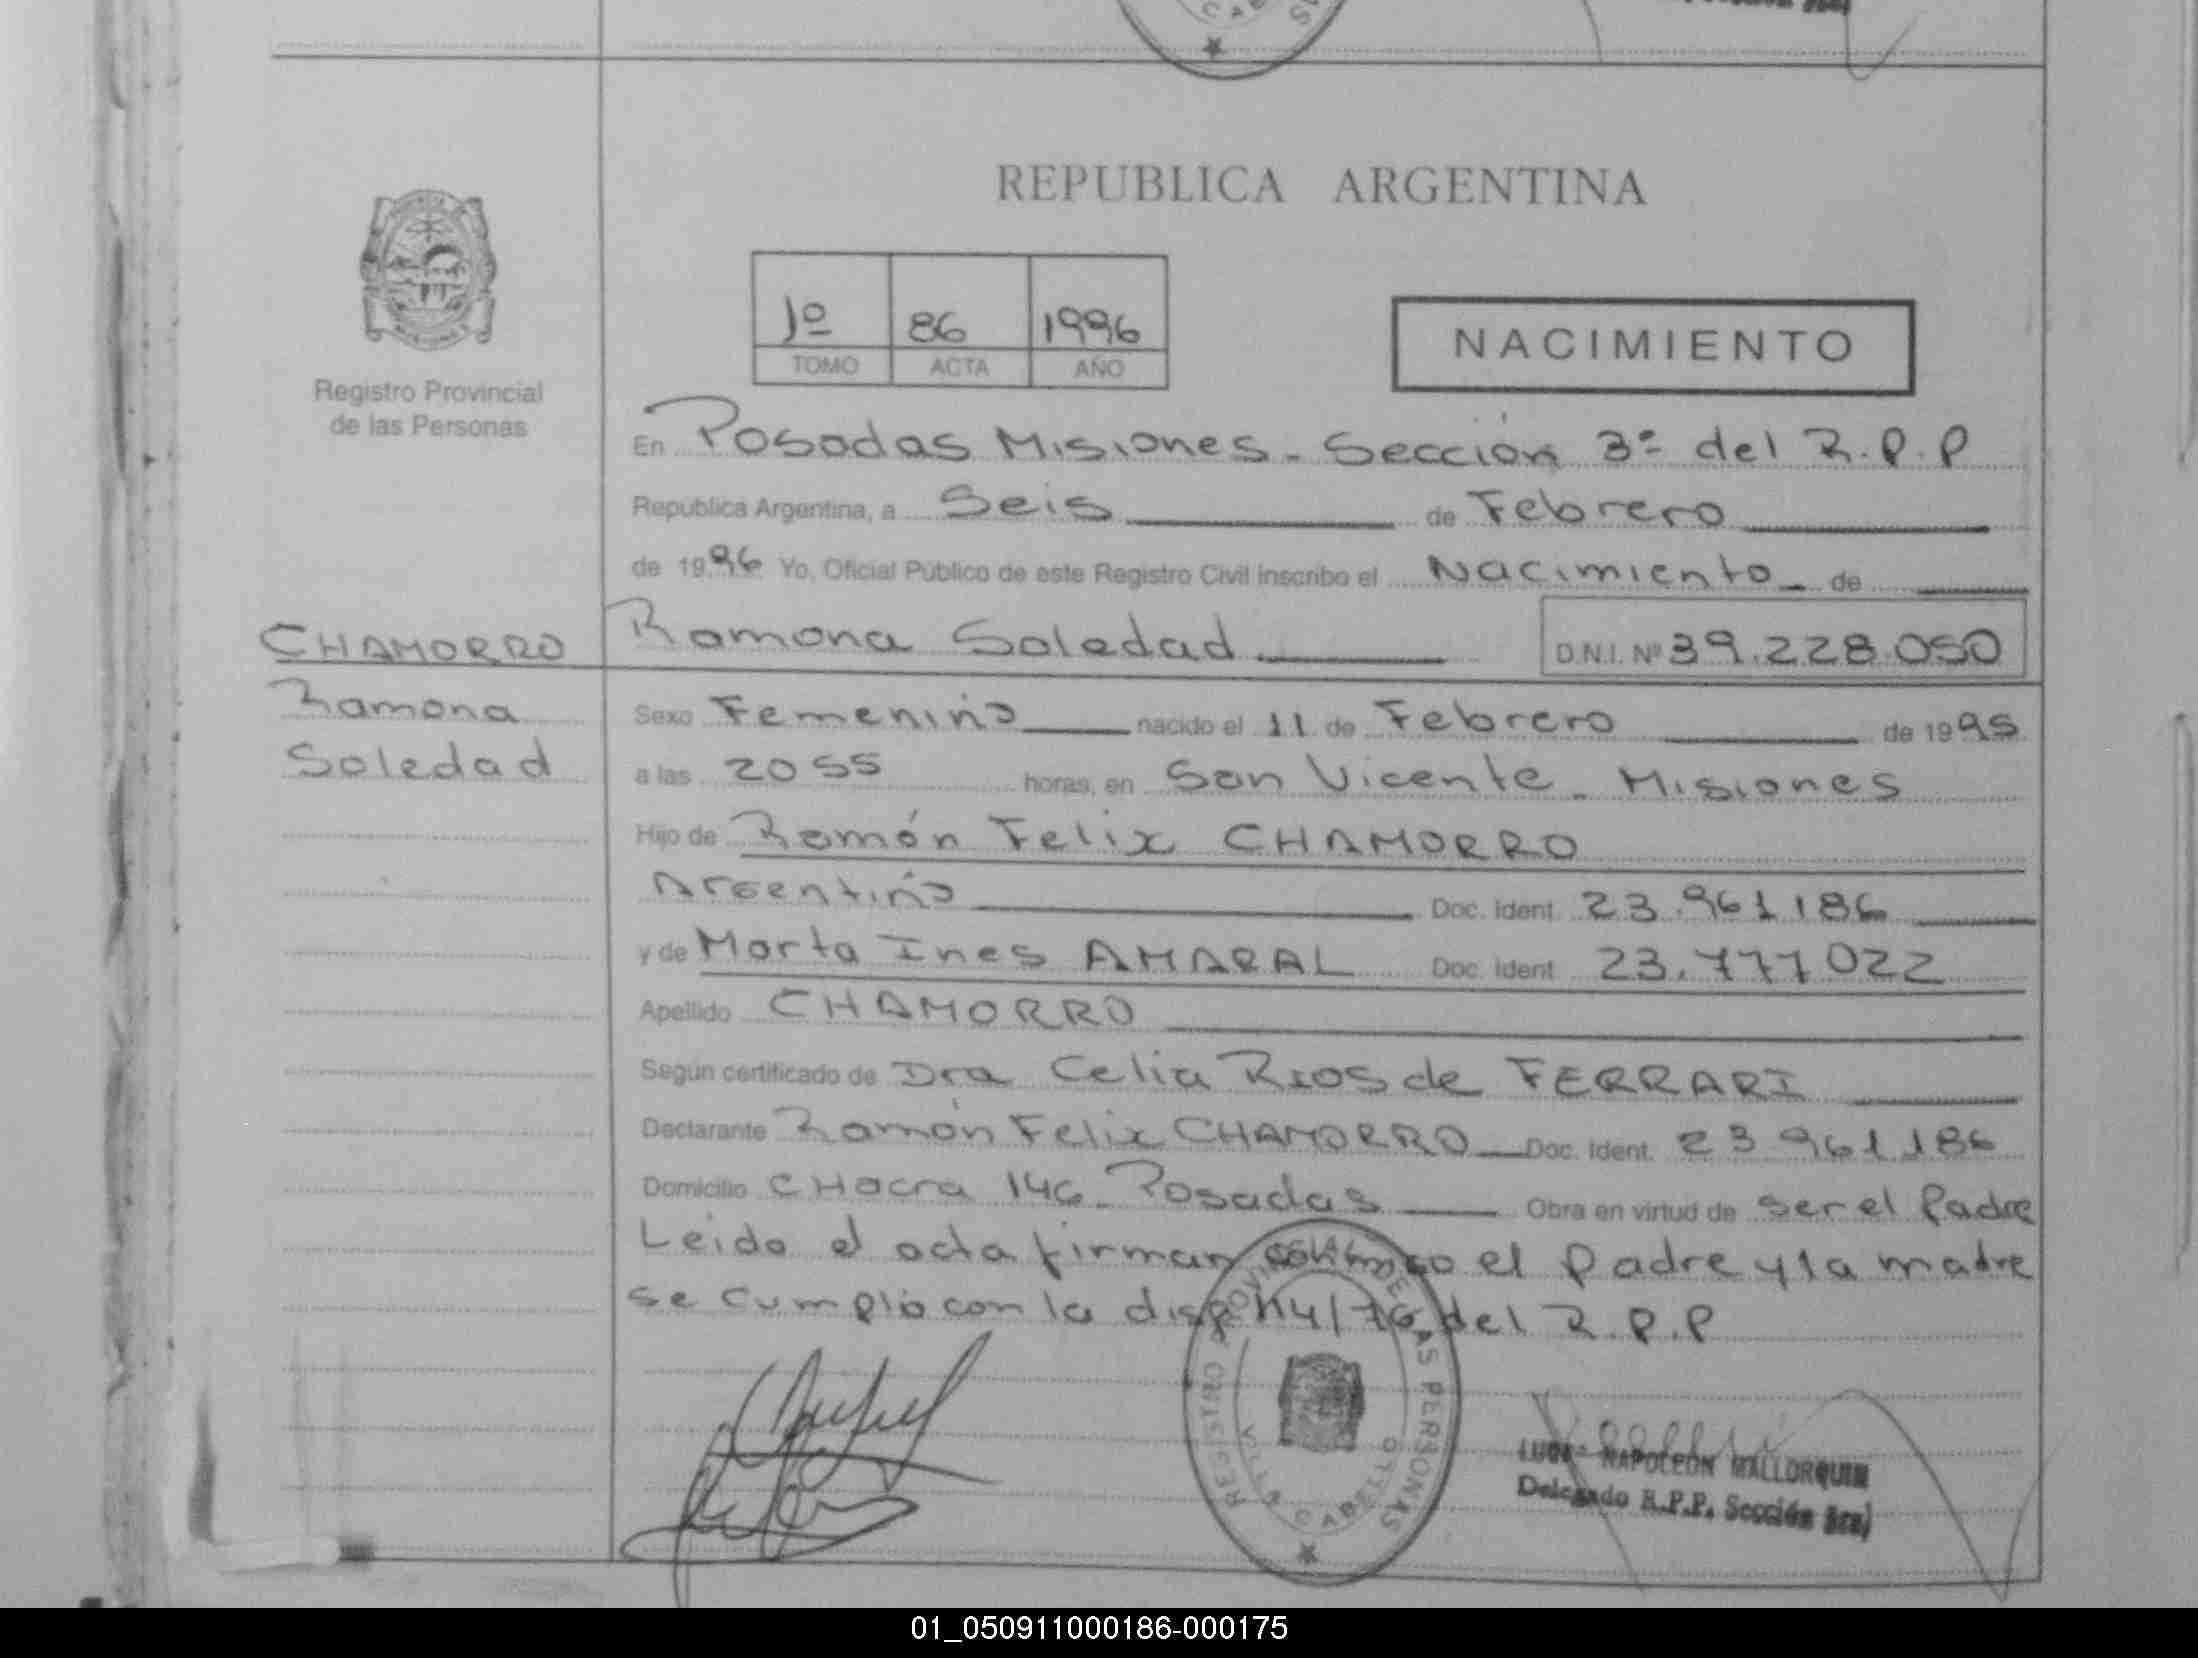 REPUBLICA ARGENTINA
Registro Provincial
de las Personas
1º 86 1996
TOMO ACTA AÑO
NACIMIENTO
En Posadas Misiones - Sección 3º del R.P.P
República Argentina, a Seis de Febrero
de 1996 Yo, Oficial Público de este Registro Civil Inscribo el Nacimiento de
CHAMORRO
Ramona
Soledad
Ramona Soledad D.N.I. Nº 39.228.050
Sexo Femenino nacido el 11 de Febrero de 1995
a las 20 55 horas, en San Vicente - Misiones
Hijo de Ramón Felix CHAMORRO
Argentino Doc. Ident. 23.961186
y de Marta Ines AMARAL Doc. Ident 23.777022
Apellido CHAMORRO
Según certificado de Dra Celia RIOS de FERRARI
Declarante Ramón Felix CHAMORRO Doc. Ident. 23 961186
Domicilio CHacra 146 - Posadas Obra en virtud de ser el Padre
Leido el acta firman conmigo el Padre y la madre
se cumplió con la disp 114/76 del R.P.P
REGISTRO PROVINCIAL DE LAS PERSONAS
NAPOLEON MALLORQUIN
Delegado R.P.P. Sección 3ra)
01_050911000186-000175